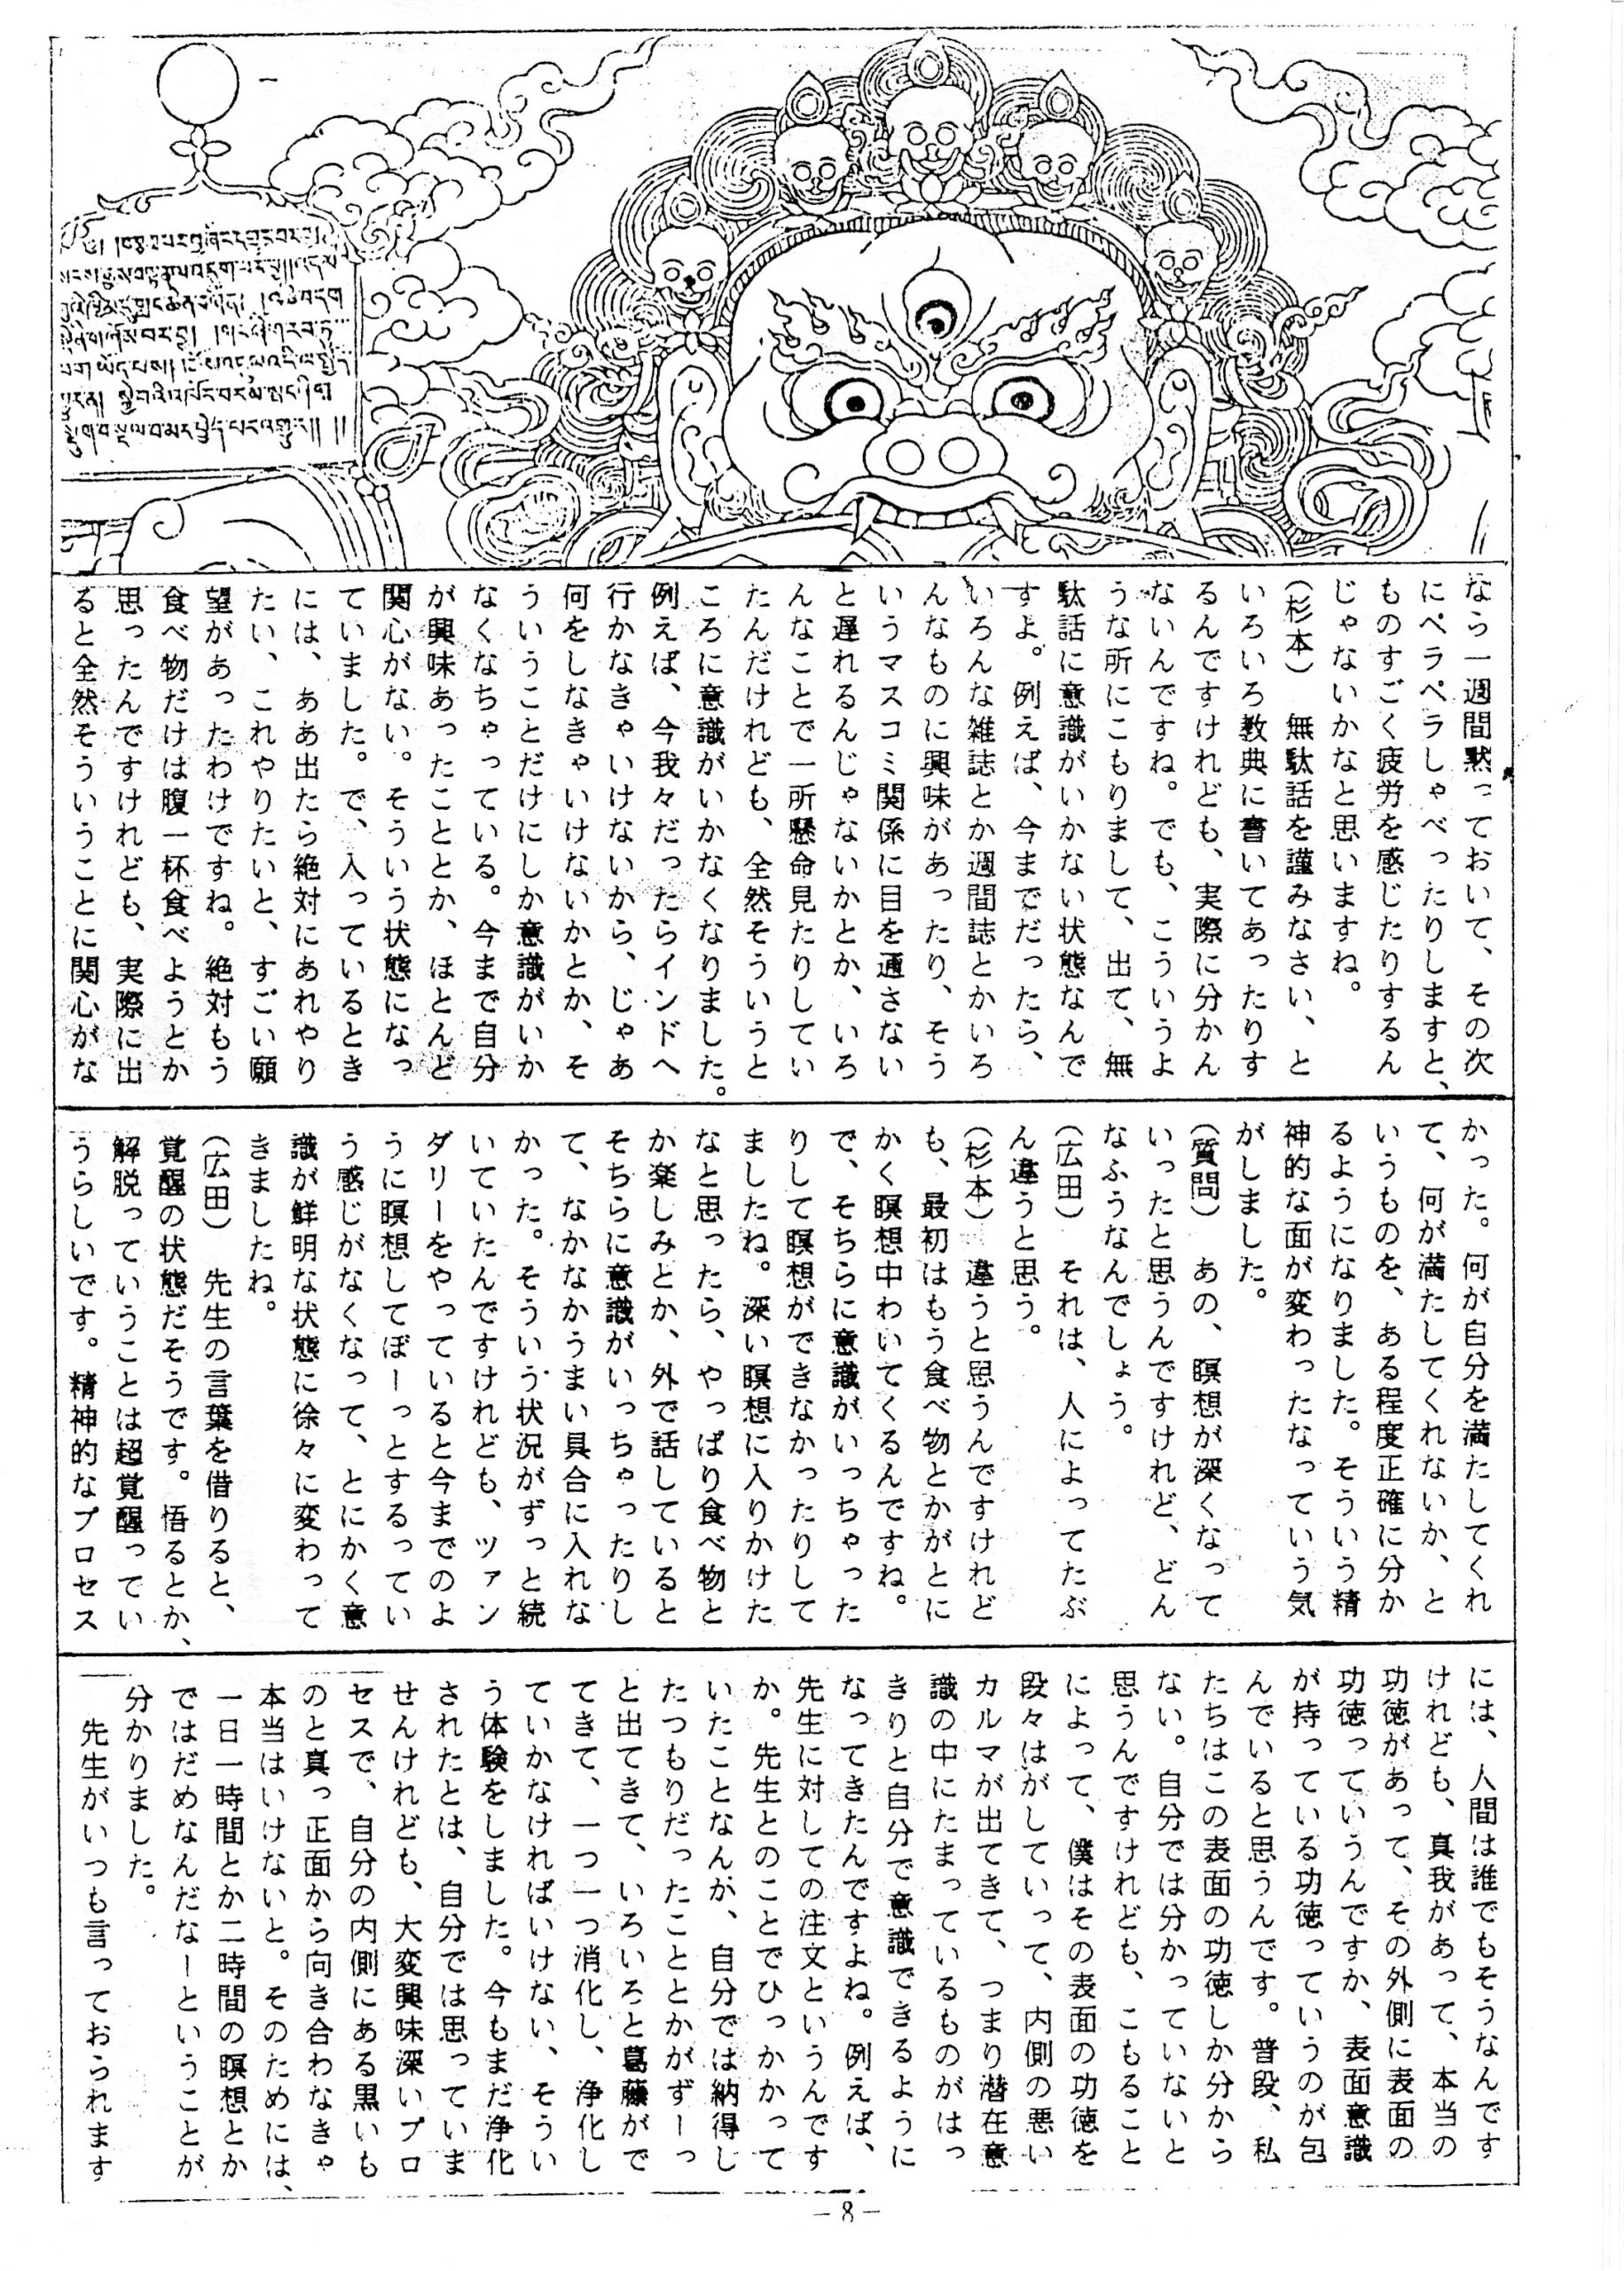 なら一週間黙っておいて、その次
にペラペラしゃべったりしますと、
ものすごく疲労を感じたりするん
じゃないかなと思いますね。
(杉本) 無駄話を謹みなさい、と
いろいろ教典に書いてあったりす
るんですけれども、実際に分かん
ないんですね。でも、こういうよ
うな所にこもりまして、出て、無
駄話に意識がいかない状態なんで
すよ。例えば、今までだったら、
いろんな雑誌とか週間誌とかいろ
んなものに興味があったり、そう
いうマスコミ関係に目を通さない
と遅れるんじゃないかとか、いろ
んなことで一所懸命見たりしてい
たんだけれども、全然そういうと
ころに意識がいかなくなりました。
例えば、今我々だったらインドへ
行かなきゃいけないから、じゃあ
何をしなきゃいけないかとか、そ
ういうことだけにしか意識がいか
なくなちゃっている。今まで自分
が興味あったこととか、ほとんど
関心がない。そういう状態になっ
ていました。で、入っているとき
には、ああ出たら絶対にあれやり
たい、これやりたいと、すごい願
望があったわけですね。絶対もう
食べ物だけは腹一杯食べようとか
思ったんですけれども、実際に出
ると全然そういうことに関心がな
かった。何が自分を満たしてくれ
て、何が満たしてくれないか、と
いうものを、ある程度正確に分か
るようになりました。そういう精
神的な面が変わったなっていう気
がしました。
(質問) あの、瞑想が深くなって
いったと思うんですけれど、どん
なふうなんでしょう。
(広田) それは、人によってたぶ
ん違うと思う。
(杉本) 違うと思うんですけれど
も、最初はもう食べ物とかがとに
かく瞑想中わいてくるんですね。
で、そちらに意識がいっちゃった
りして瞑想ができなかったりして
ましたね。深い瞑想に入りかけた
なと思ったら、やっぱり食べ物と
か楽しみとか、外で話していると
そちらに意識がいっちゃったりし
て、なかなかうまい具合に入れな
かった。そういう状況がずっと続
いていたんですけれども、ツァン
ダリーをやっていると今までのよ
うに瞑想してぼーっとするってい
う感じがなくなって、とにかく意
識が鮮明な状態に徐々に変わって
きましたね。
(広田) 先生の言葉を借りると、
覚醒の状態だそうです。悟るとか、
解脱っていうことは超覚醒ってい
うらしいです。精神的なプロセス
には、人間は誰でもそうなんです
けれども、真我があって、本当の
功徳があって、その外側に表面の
功徳っていうんですか、表面意識
が持っている功徳っていうのが包
んでいると思うんです。普段、私
たちはこの表面の功徳しか分から
ない。自分では分かっていないと
思うんですけれども、こもること
によって、僕はその表面の功徳を
段々はがしていって、内側の悪い
カルマが出てきて、つまり潜在意
識の中にたまっているものがはっ
きりと自分で意識できるように
なってきたんですよね。例えば、
先生に対しての注文というんです
か。先生とのことでひっかかって
いたことなんが、自分では納得し
たつもりだったこととかがずーっ
と出てきて、いろいろと葛藤がで
てきて、一つ一つ消化し、浄化し
ていかなければいけない、そうい
う体験をしました。今もまだ浄化
されたとは、自分では思っていま
せんけれども、大変興味深いプロ
セスで、自分の内側にある黒いも
のと真っ正面から向き合わなきゃ
本当はいけないと。そのためには、
一日一時間とか二時間の瞑想とか
ではだめなんだなーということが
分かりました。
先生がいつも言っておられます
－8－